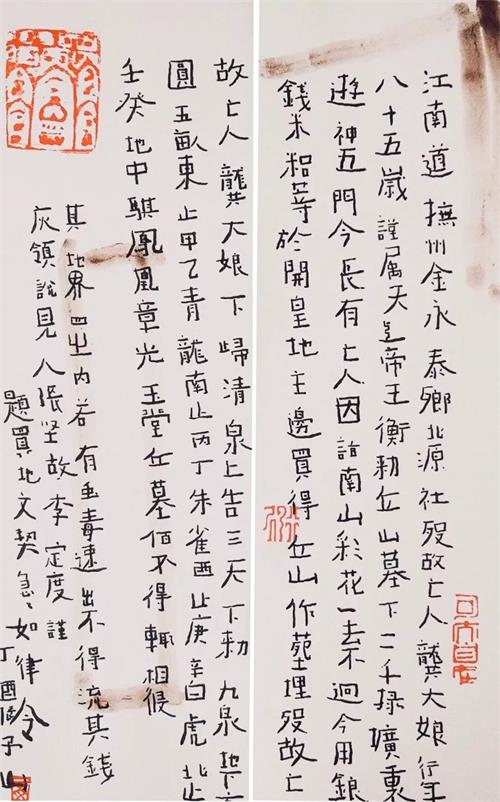 江南道撫州金永泰鄉北源社歿故亡人龔大娘行年
八十五歲謹属天帝王衡勅丘山墓下二千掾
遊神五門今長有亡人因詣南山彩花一去不迴今用銀
錢米粭等於開皇地主邊買得丘山作菀埋歿故亡
故亡人龔大娘下歸清泉上告三天下勅九泉地下
圓五畝東止甲乙青龍南止丙丁朱雀西止庚辛白虎北止
壬癸地中騏鳳凰章光玉堂丘墓佰不得輒相侵
其地界四止内若有毒速出不得流其錢
灰領説見人張坚故李定度謹
題買地文契急〻如律令
丁酉